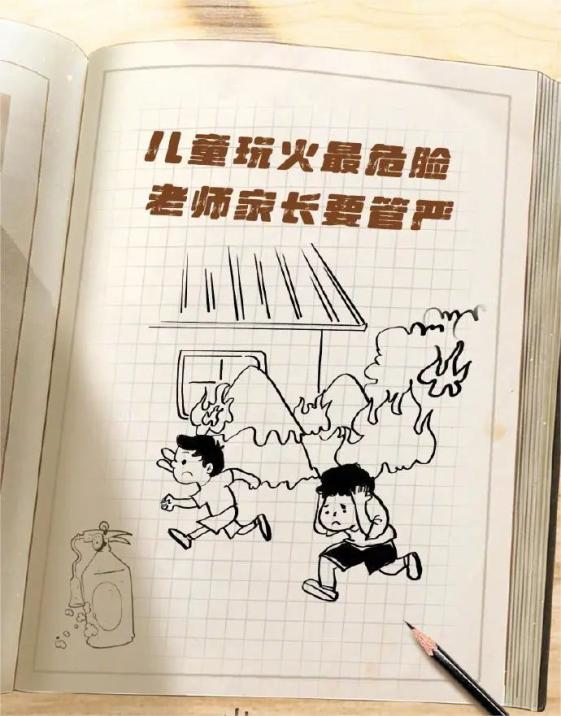 儿童玩火最危脸
老师家长要管严